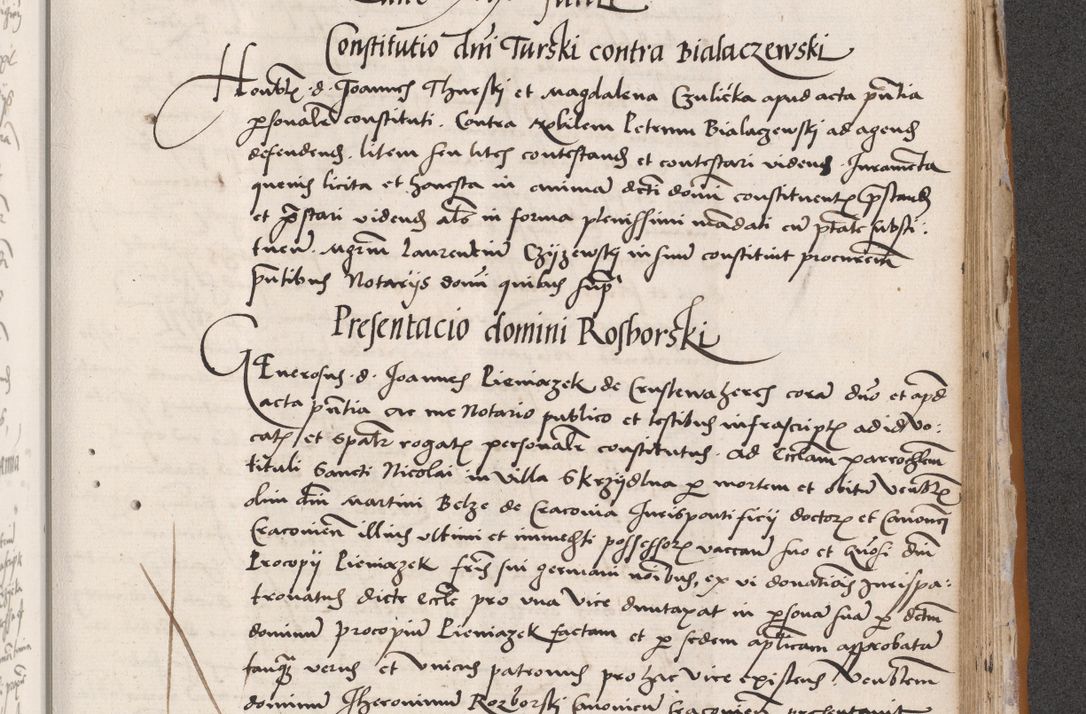 Constitutio dni Turski contra Bialaczewski
Honblis d. Joannes Thurski et Magdalena Czulicka apud acta pntia
psonalr constituti. Contra Nobilem Petrum Bialaczewskj ad agend
defendend. litem seu lites contestand et contestari vidend. Juramenta
quevis licita et honesta in animam dcti domi constituentis pstand
et pstari vidend als in forma plenissimi mandati cu ptate substi:
tuen. Mgrm Laurentium Czyzewskj in suum constituit procurem
pntibus Notarijs domi quibus sup
Presentacio domini Rosborski
GEnerosus d. Joannes Pieniazek de Crustewa heres coram dno et apd
acta pntia ac me Notario publico et testibus infrascriptis ad id vo:
catis et spalr rogatis personalr constitutus. ad Ecclam parrochlem
tituli Sancti Nicolai in villa Skrzydlna p mortem et obitum Venblis
olim dni Martini Belze de Cracovia Jurispontificij doctoris et Canonici
Cracovien illius ultimi et immediti possessoris vaccan suo et Gnosi dni
Procopij Pieniazek fris sui germani noibus, ex vi donationis Jurispa:
tronatus dicte Eccle pro una vice duntaxat in psonam suam p dctum
dominum Procopium Pieniazek factam et p sedem aplicam approbatam
tanq verus et unicus patronus pro hac vice existens. Venblem
dominum Jheronimum Rozborski Canonicum Cracovien presentavit